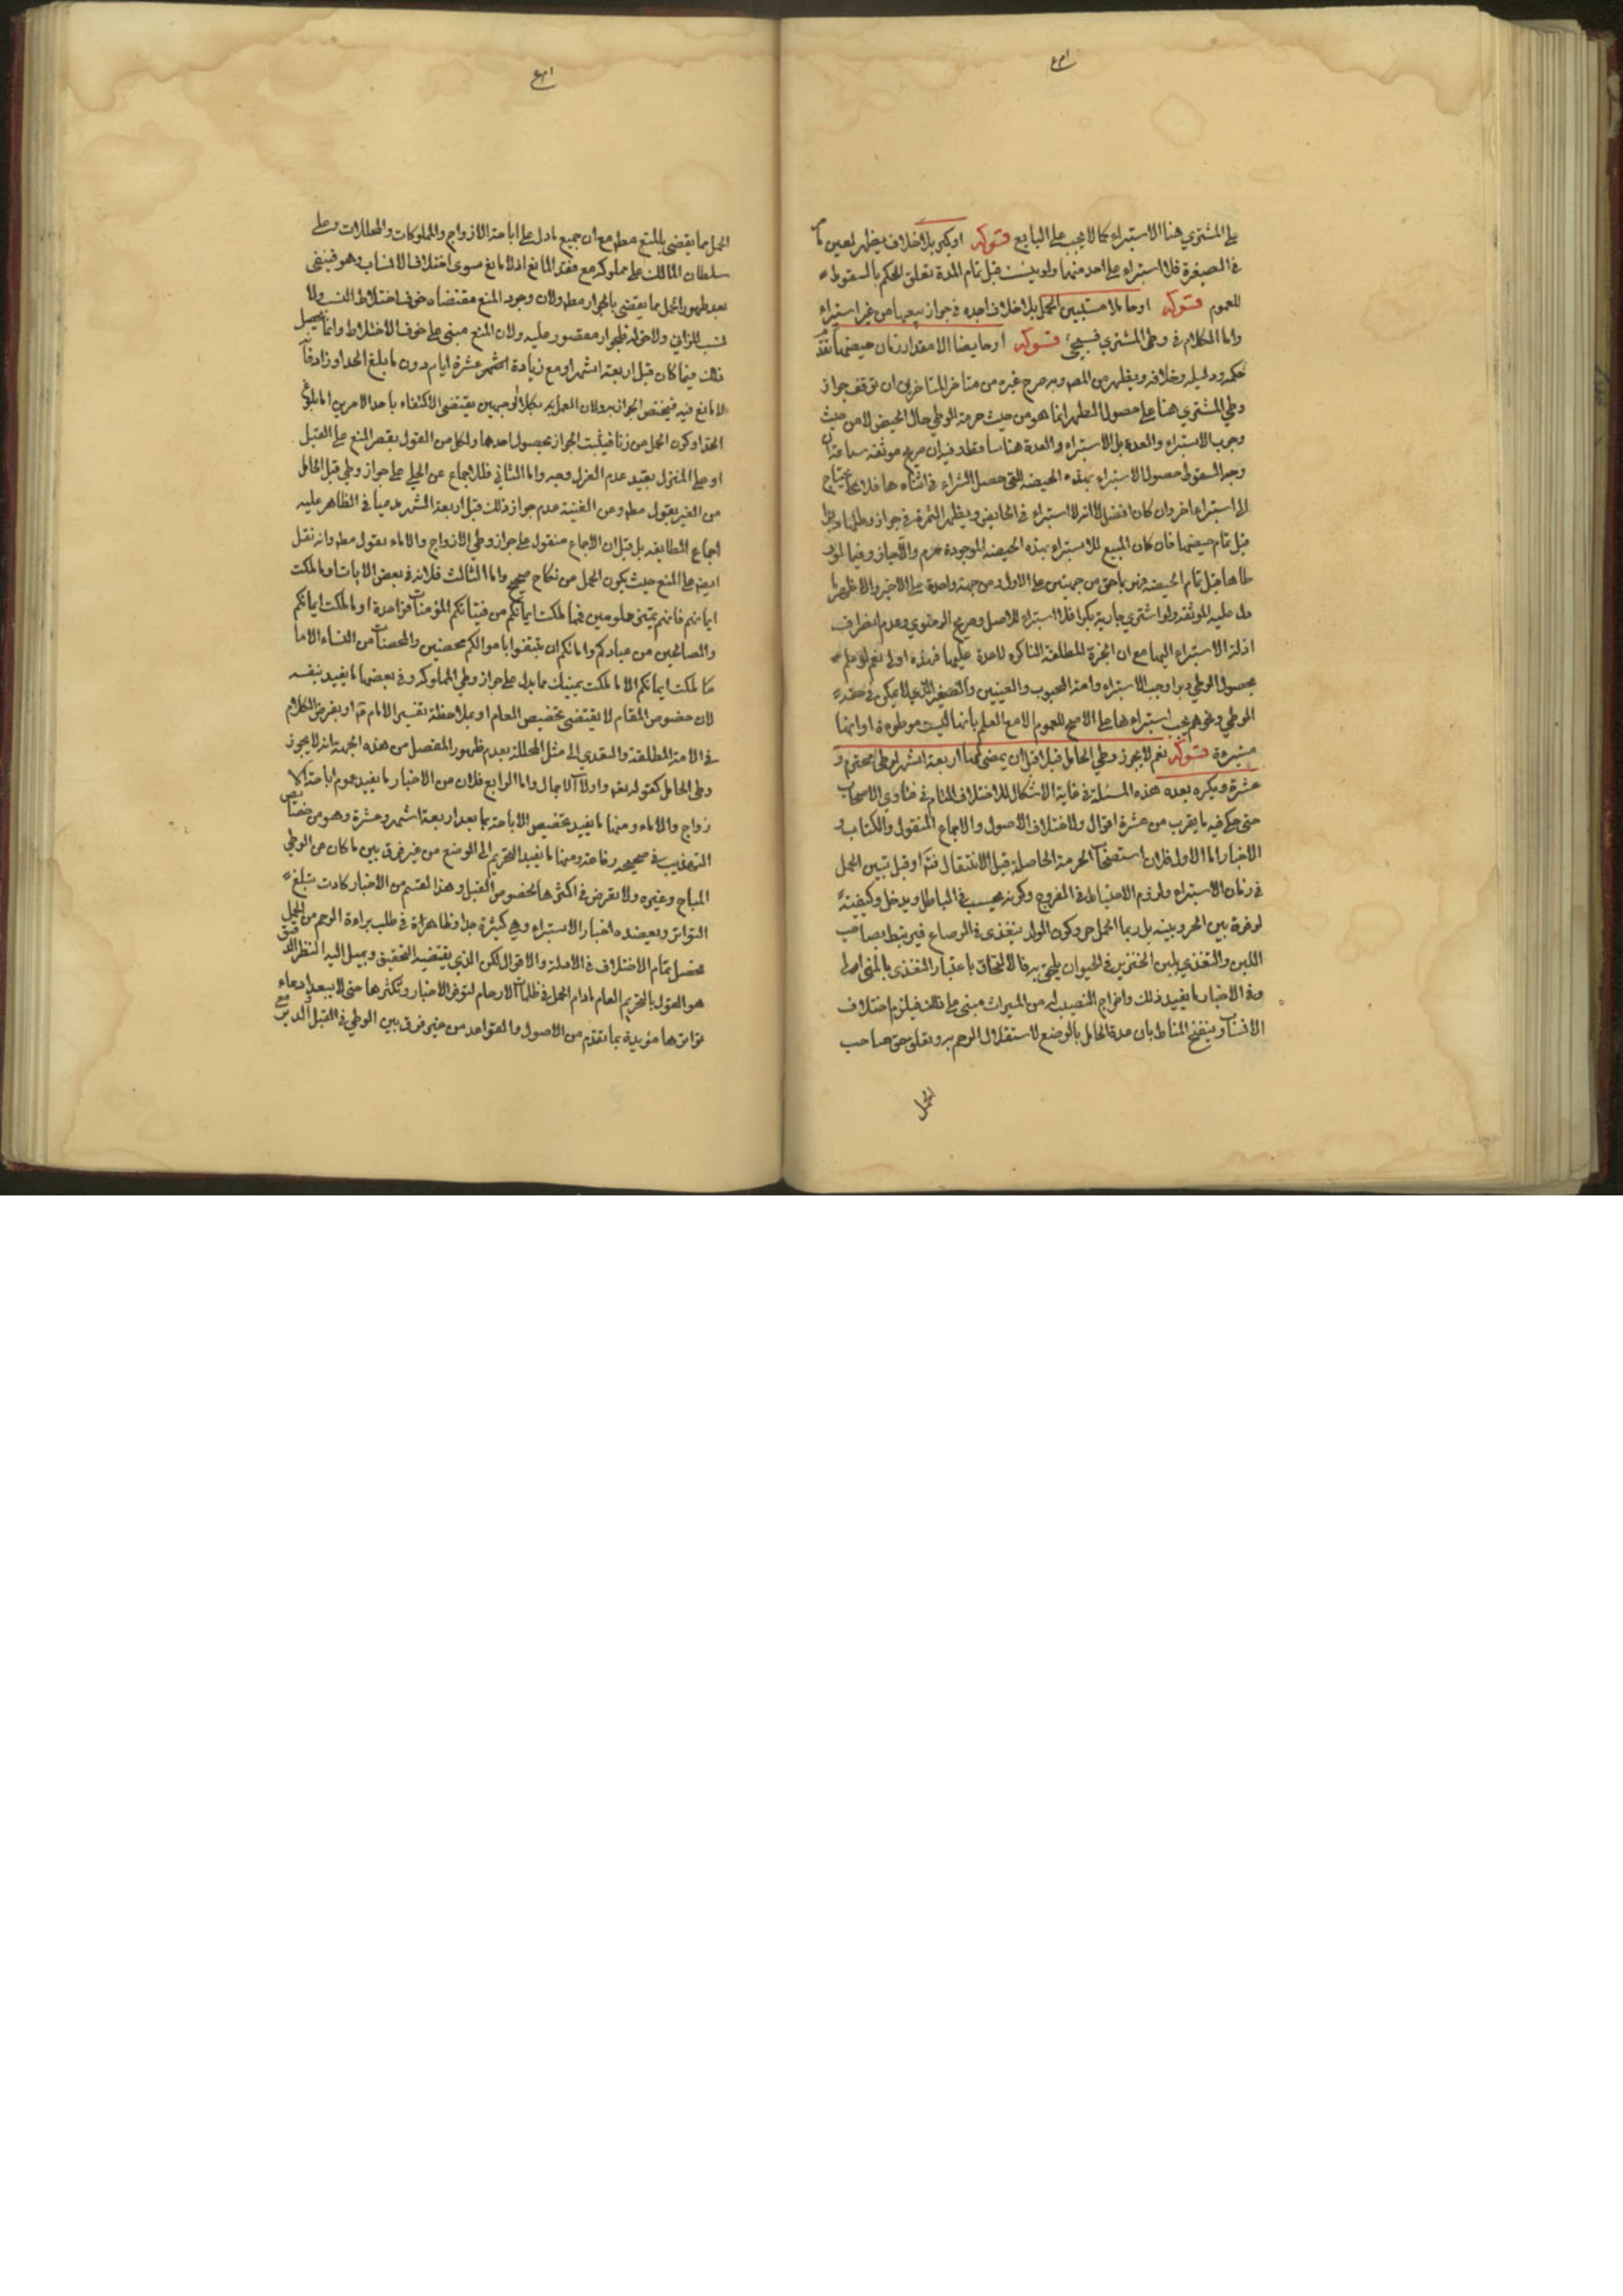 على المشتري هنا الاستبراء كما لا يجب على البايع قوله او كبر بلا خلاف يظهر لعين ما
في الصغيرة فلا استبراء على احد منهما ولو يئست قبل تمام المدة تعلق الحكم بالسقوط
للعموم قوله او حاملا مستبين الحمل بلا خلاف اجده في جواز بيعها من غير استبراء
واما الكلام في وطى المشتري فسيجئ قوله او حايضا الا مقدار زمان حيضها تقدم
حكمه ودليله وخلافه ويظهر من المص وبه صرح غيره من متاخر المتاخرين ان توقف جواز
وطي المشتري هنا على حصول الطهر انما هو من حيث حرمة الوطي حال الحيض لا من حيث
وجوب الاستبراء والعدة بل الاستبراء والعدة هنا ساقطة وفيه ان صريح موثقه سماعة ان
وجه السقوط حصول الاستبراء بهذه الحيضه التي حصل الشراء في اثناءها فلا يحتاج
الى استبراء اخر وان كان افضل لا انه لا استبراء في الحايض ويظهر الثمرة في جواز وطئها
قبل تمام حيضها فان كان المبيح للاستبراء بهذه الحيضه الموجودة حرم والا جاز وفيما لو
طاها قبل تمام الحيضه من جهتين على الاول ومن جهة واحدة على الاخير والاظهر ما
دل عليه الموثقه ولو اشتري جارية بكرا فلا استبراء للاصل وصريح الرضوي وعدم انصراف
ادلة الاستبراء اليها مع ان الحرة المطلقة الباكره لا عدة عليها فهذه اولى نعم لو علم
بحصول الوطي دبرا وجب الاستبراء وامة المجبوب والعينين والصغير الذي لا يمكن في حقه
الوطي ونحوهم يجب استبراءها على الاصح للعموم الا مع العلم بانها ليست موطوءة او انها
مستبرءة قوله نعم لا يجوز وطي الحامل قبلا قبل ان يمضى لها اربعة اشهر لوطى محترم و
عشرة ويكره بعده هذه المسئلة في غاية الاشكال للاختلاف التام في فتاوي الاصحاب
حتى حكي فيه ما يقرب من عشرة اقوال ولاختلاف الاصول والاجماع المنقول والكتاب و
الاخبار اما الاول فلان استصحاب الحرمة الحاصلة قبل الانتقال او قبل تبين الحمل
في زمان الاستبراء ولزوم الاحتياط في الفروج وكونه في الباطل ويدخل وكيفيته
لوفرة بين الحر وبينه بل ربما الحمل حر وكون الولد يتغذى في الرضاع فيرتبط بصاحب
اللبن والتغذي بلبن الخنزير في الحيوان يلحق به فالالتحاق باعتبار المغذى بالمنى اولى
وفي الاخبار ما يفيد ذلك واخراج النصيب له من الميراث مبنى على ذلك فيلزم اختلاف
الانساب وينقح المناط بان عدة الحامل بالوضع لاستقلال الرحم به وتعلق حق صاحب
الحمل
الحمل مما يقضي بالمنع مطلقا مع ان جميع ما دل على اباحة الازواج والمملوكات والمحللات وعلى
سلطان المالك على مملوكه مع فقد المانع اذ لا مانع سوى اختلاف الانساب وهو فينفى
بعد ظهور الحمل مما يقضي بالجواز مطلقا ولان وجود المنع مقتضاه خوف اختلاط النسب ولا
نسب للزاني ولا حق له فالجواز مقصور عليه ولان المنع مبنى على خوف الاختلاط وانما يحصل
ذلك فيما كان قبل اربعة اشهر او مع زيادة عشرة ايام دون ما بلغ الحد او زاد
لا مانع فيه فيختص الجواز به ولان العمل بكلا الوجهين يقتضى الاكتفاء باحد الامرين اما بلوغ
الحد او كون الحمل من زنا فيثبت الجواز بحصول احدهما ولكل من القول بقصر المنع على القبل
او على المنزل بقيد عدم العزل وجه واما الثاني فللاجماع عن الحلي على جواز وطي قبل الحامل
من الغير بقول مطلق وعن الغنية عدم جواز ذلك قبل اربعة اشهر مدعيا في الظاهر عليه
اجماع الطايفه بل قيل ان الاجماع منقول على جواز وطي الازواج والاماء بقول مطلق وانه نقل
ايضا على المنع حيث يكون الحمل من نكاح صحيح واما الثالث فلانه في بعض الايات او ما ملكت
ايمانهم فانهم غير ملومين فمما ملكت ايمانكم من فتياتكم المؤمنات فواحدة او ما ملكت ايمانكم
والصالحين من عبادكم وامائكم ان تبتغوا باموالكم محصنين والمحصنات من النساء الا ما
ملكت ايمانكم الا ما ملكت يمينك مما يدل على جواز وطي المملوكه وفي بعضها ما يفيد بنفسه
لان خصوص المقام لا يقتضى تخصيص العام او بملاحظة تفسير الامام او بفرض الكلام
في الامة المطلقة والتعدي الى مثل المحللة بعدم ظهور المفصل من هذه الجهة انه لا يجوز
وطى الحامل كقوله تعالى واولات الاحمال واما الرابع فلان من الاخبار ما يفيد عموم اباحة الا
زواج والاماء ومنها ما يفيد تخصيص الاباحة بما بعد اربعة اشهر وعشرة وهو من خصايص
التهذيب في صحيحه رفاعة ومنها ما يفيد التحريم الى الوضع من غير فرق بين ما كان من الوطي
المباح وغيره ولا تعرض في اكثرها لخصوص القبل وهذا القسم من الاخبار كادت تبلغ
التواتر ويعضده اخبار الاستبراء وهي كثيرة جدا وظاهرة في طلب براءة الرحم من الحمل
فحصل تمام الاختلاف في الادلة والاقوال لكن الذي يقتضيه التحقيق ويميل اليه النظر الدقيق
هو القول بالتحريم العام ما دام الحمل في ظلمات الارحام لتوفر الاخبار وتكثرها حتى لا يبعد ادعاء
تواترها مؤيدة بما تقدم من الاصول والقواعد من غير فرق بين الوطي في القبل والدبر